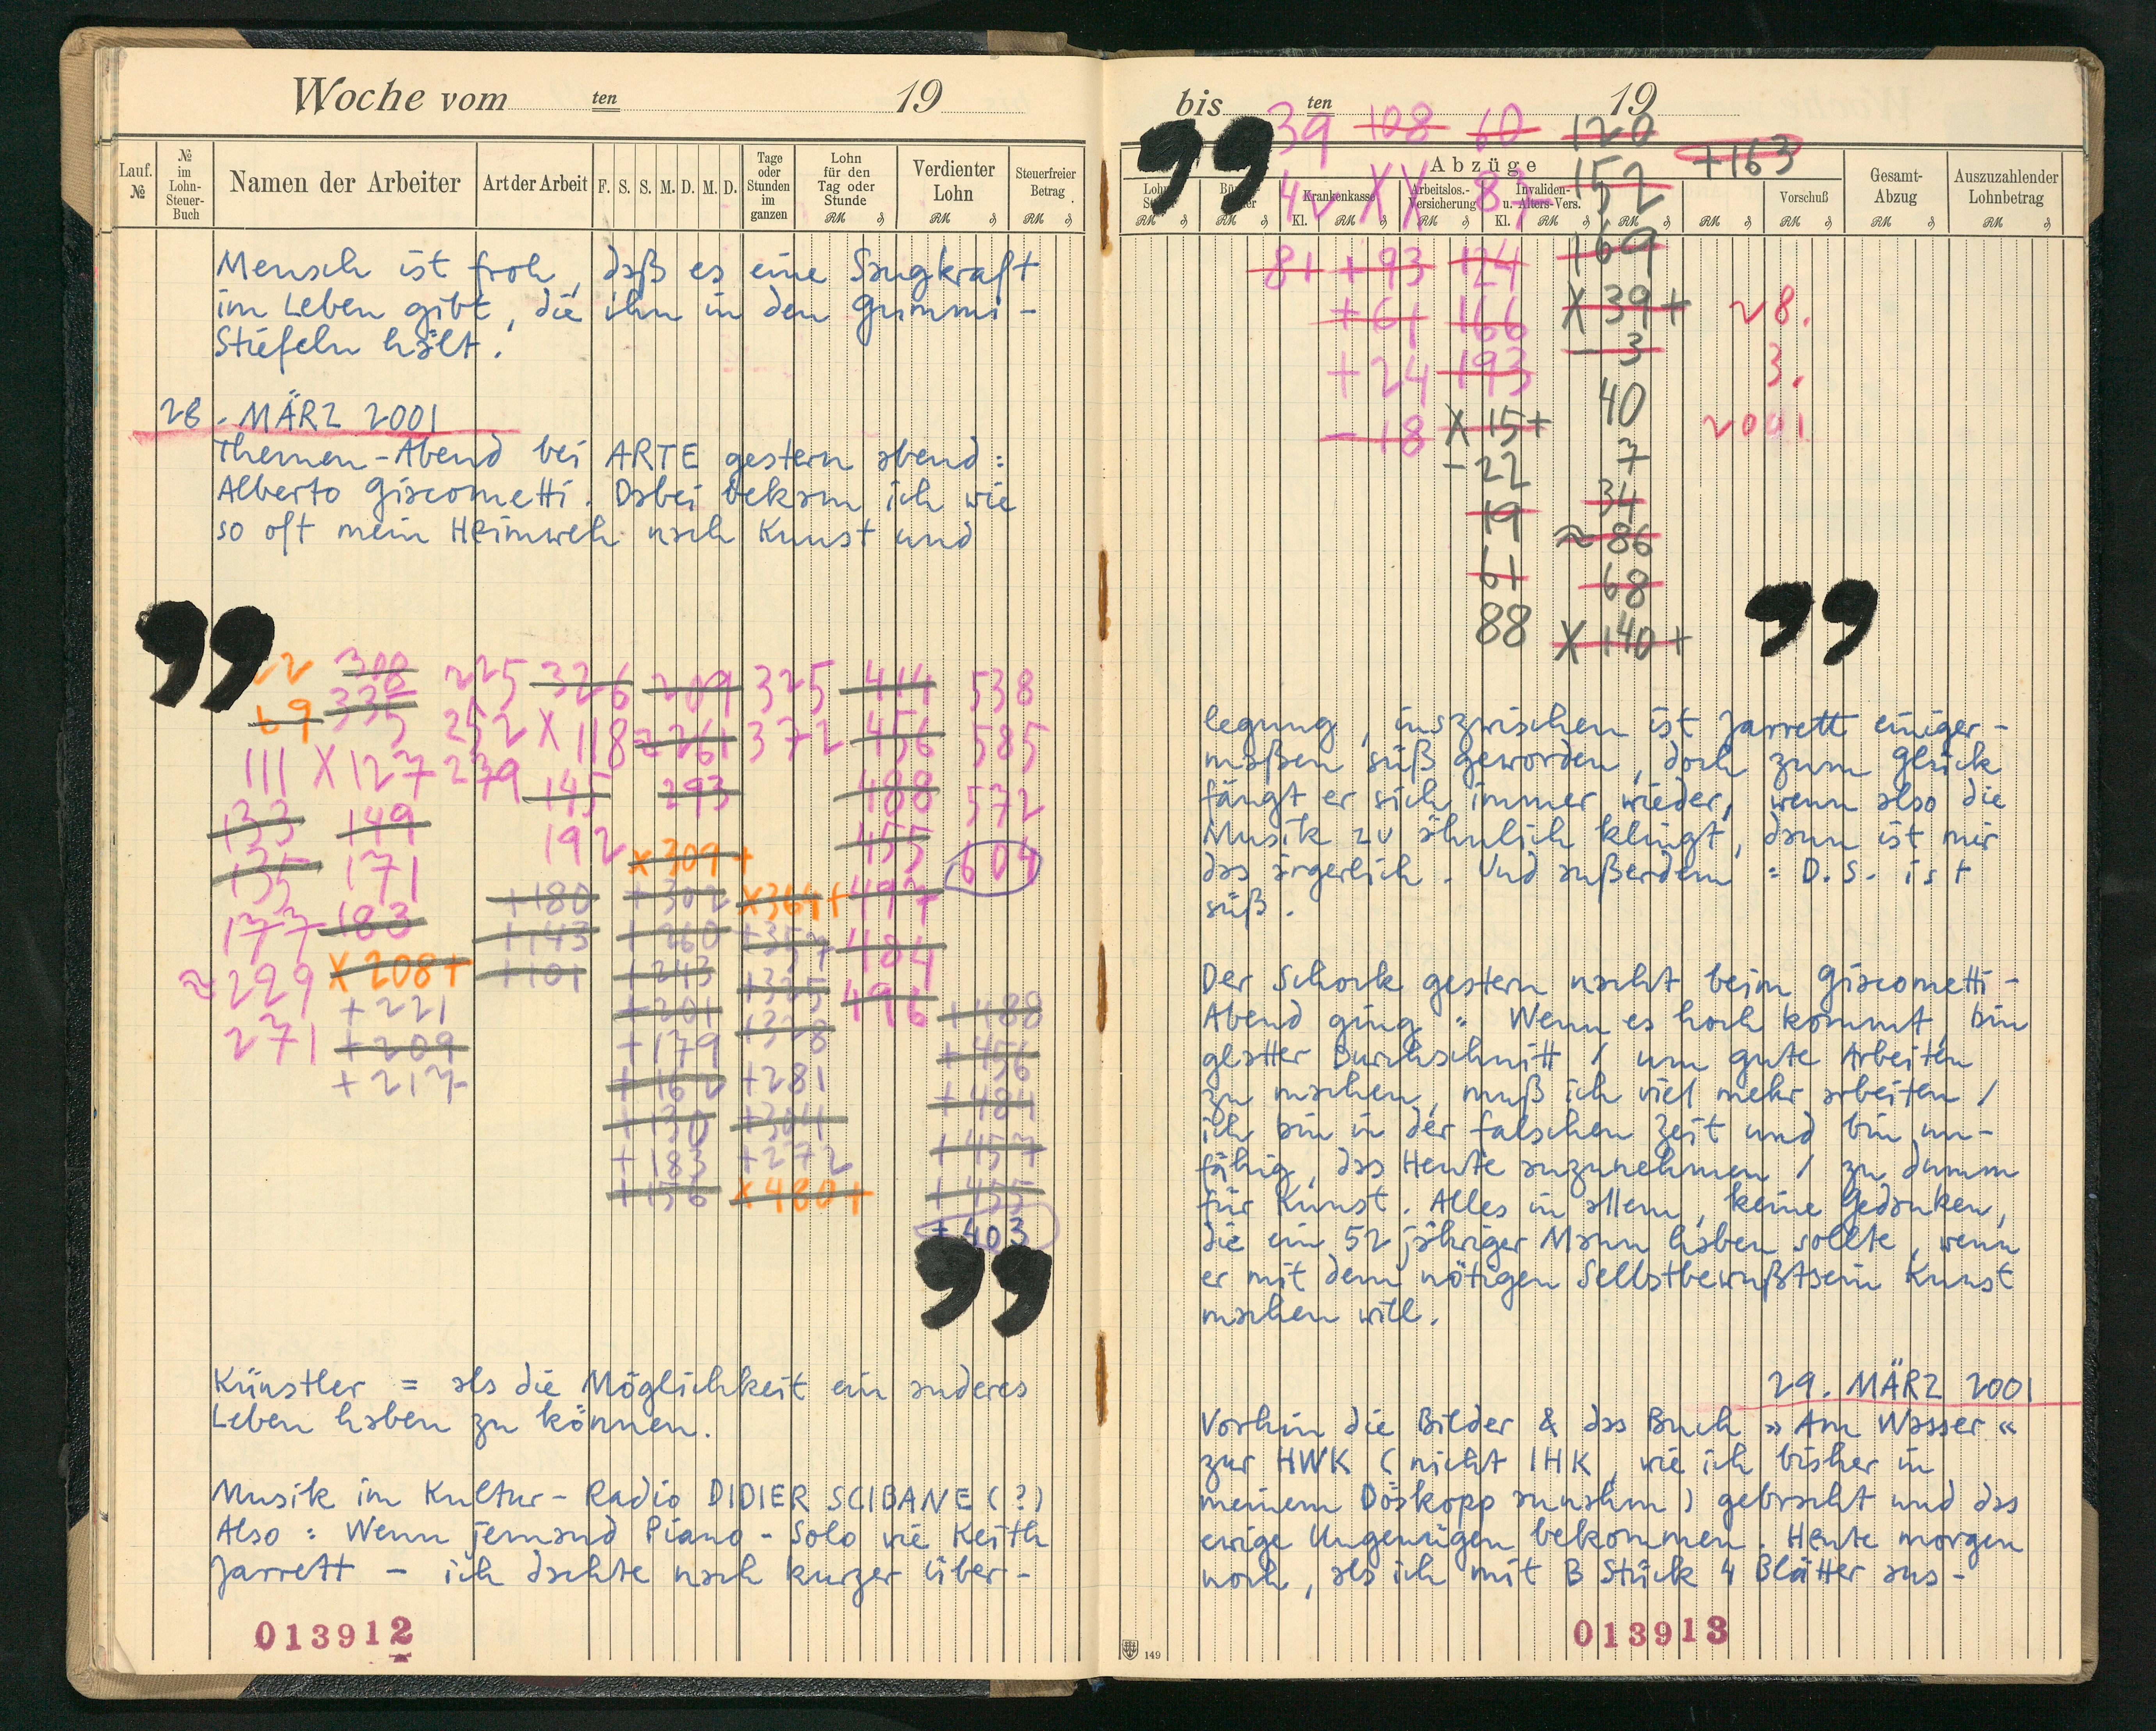 Woche vom ten 19
Lauf. №
№ im Lohn-Steuer-Buch
Namen der Arbeiter
Art der Arbeit
F. S. S. M. D. M. D.
Tage oder Stunden im ganzen
Lohn für den Tag oder Stunde
Verdienter Lohn
Steuerfreier Betrag
RM ₰ RM ₰ RM ₰
Mensch ist froh, daß es eine Saugkraft
im Leben gibt, die ihn in den Gummi-
Stiefeln hält.
28. MÄRZ 2001
Themen-Abend bei ARTE gestern abend:
Alberto Giacometti. Dabei bekam ich wie
so oft mein Heimweh nach Kunst und
308 225 326 209 325 414 538
69 335 252 X 118 ≈261 372 456 585
111 X 127 239 145 293 488 572
133 149 192 X 309+ 455 604
135 171 +180 +302 X364+ 497
177 183 +143 +260 +357 484
≈229 X 208+ +101 +243 +325 496
271 +221 +201 +328 +488
+209 +179 +281 +456
+217 +162 +304 +484
+130 +272 +457
+183 X480+ +455
+156 +403
Künstler = als die Möglichkeit ein anderes
Leben haben zu können.
Musik im Kultur-Radio DIDIER SCIBANE (?)
Also: Wenn jemand Piano-Solo wie Keith
Jarrett – ich dachte nach kurzer Über-
013912
bis ten 19
Abzüge
Krankenkasse
Arbeitslos.-Versicherung
Invaliden- u. Alters-Vers.
Vorschuß
Gesamt-Abzug
Auszuzahlender Lohnbetrag
39 108 60 120 +163
42 X X 87 152
81 +93 124 169
+61 166 X 39+ 28.
+24 193 -3 3.
-18 X 15+ 40 2001
-22 7
19 34
61 ≈86
88 68
X 140+
legung, inszwischen ist Jarrett einiger-
maßen süß geworden, doch zum Glück
fängt er sich immer wieder, wenn also die
Musik zu ähnlich klingt, dann ist mir
das ärgerlich. Und außerdem: D.S. ist
süß.
Der Schock gestern nacht beim Giacometti-
Abend ging: Wenn es hoch kommt, bin
glatter Durchschnitt / um gute Arbeiten
zu machen, muß ich viel mehr arbeiten /
ich bin in der falschen Zeit und bin un-
fähig, das Heute anzunehmen / zu dumm
für Kunst. Alles in allem, keine Gedanken,
die ein 52 jähriger Mann haben sollte, wenn
er mit dem nötigen Selbstbewußtsein Kunst
machen will.
29. MÄRZ 2001
Vorhin die Bilder & das Buch »Am Wasser«
zur HWK (nicht IHK, wie ich bisher in
meinem Döskopp annahm) gebracht und das
ewige Ungenügen bekommen. Heute morgen
noch, als ich mit B Stück 4 Blätter aus-
013913
149